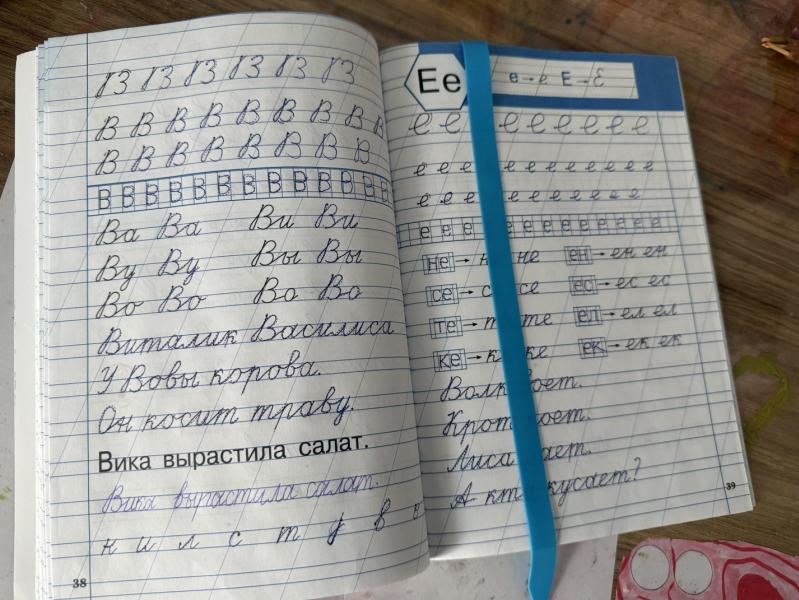 В В В В В В
В В В В В В В В
В В В В В В В В
В В В В В В В В В В В В В
Ва Ва Ви Ви
Ву Ву Вы Вы
Во Во Во Во
Виталик Василиса
У Вовы корова.
Он косит траву.
Вика вырастила салат.
Вика вырастила салат.
н и л с т у в
38
Ее
е→е Е→Е
е е е е е е е е е
е е е е е е е е е е е е
е е е е е е е е е е е
е е е е е е е е е е е е е
не → не ен → ен ен
се → се ес → ес ес
те → те ел → ел ел
ке → ке ек → ек ек
Волк
Крот
Лиса
А кусает?
39